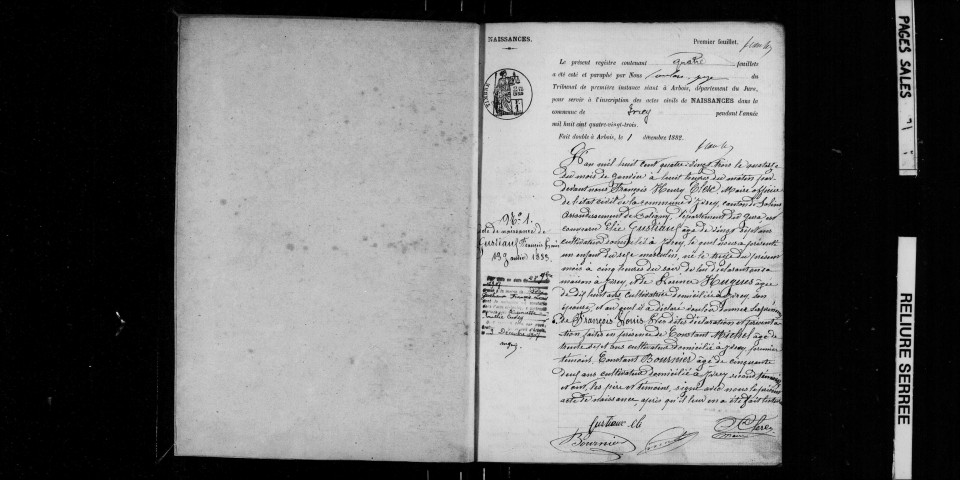 NAISSANCES.
Premier feuillet.
Le présent registre contenant quatre feuillets
a été coté et paraphé par Nous du
Tribunal de première instance séant à Arbois, département du Jura,
pour servir à l'inscription des actes civils de NAISSANCES dans la
commune de Ivrey pendant l'année
mil huit cent quatre-vingt-trois.
Fait double à Arbois, le 1 décembre 1882.
L'an mil huit cent quatre vingt trois le quatorze
du mois de janvier à huit heures du matin par
devant nous François Henry Clerc Maire officier
de l'état civil de la commune d'Ivrey, canton de Salins
arrondissement de Poligny, département du Jura est
comparu Elie Gustiaux âgé de vingt sept ans
cultivateur domicilié à Ivrey, lequel nous a présenté
un enfant du sexe masculin, né le treize du présent
mois à cinq heures du soir de lui déclarant en sa
maison à Ivrey, et de Hugues âgée
de dix huit ans cultivatrice domiciliée à Ivrey son
épouse, et auquel il a déclaré vouloir donner les prénoms
de François Louis. Les dites déclaration et présenta-
tion faites en présence de Constant Michel âgé de
trente sept ans cultivateur domicilié à Ivrey premier
témoin, Constant Bournier âgé de cinquante
deux ans cultivateur domicilié à Ivrey second témoin
et ont, les père et témoins, signé avec nous le présent
acte de naissance, après qu'il leur en a été fait lecture
N° 1.
acte de naissance de
Gustiaux François Louis
13 Janvier 1883.
Gustiaux Elie
Bournier
Clerc
maire
PAGES SALES
RELIURE SERREE